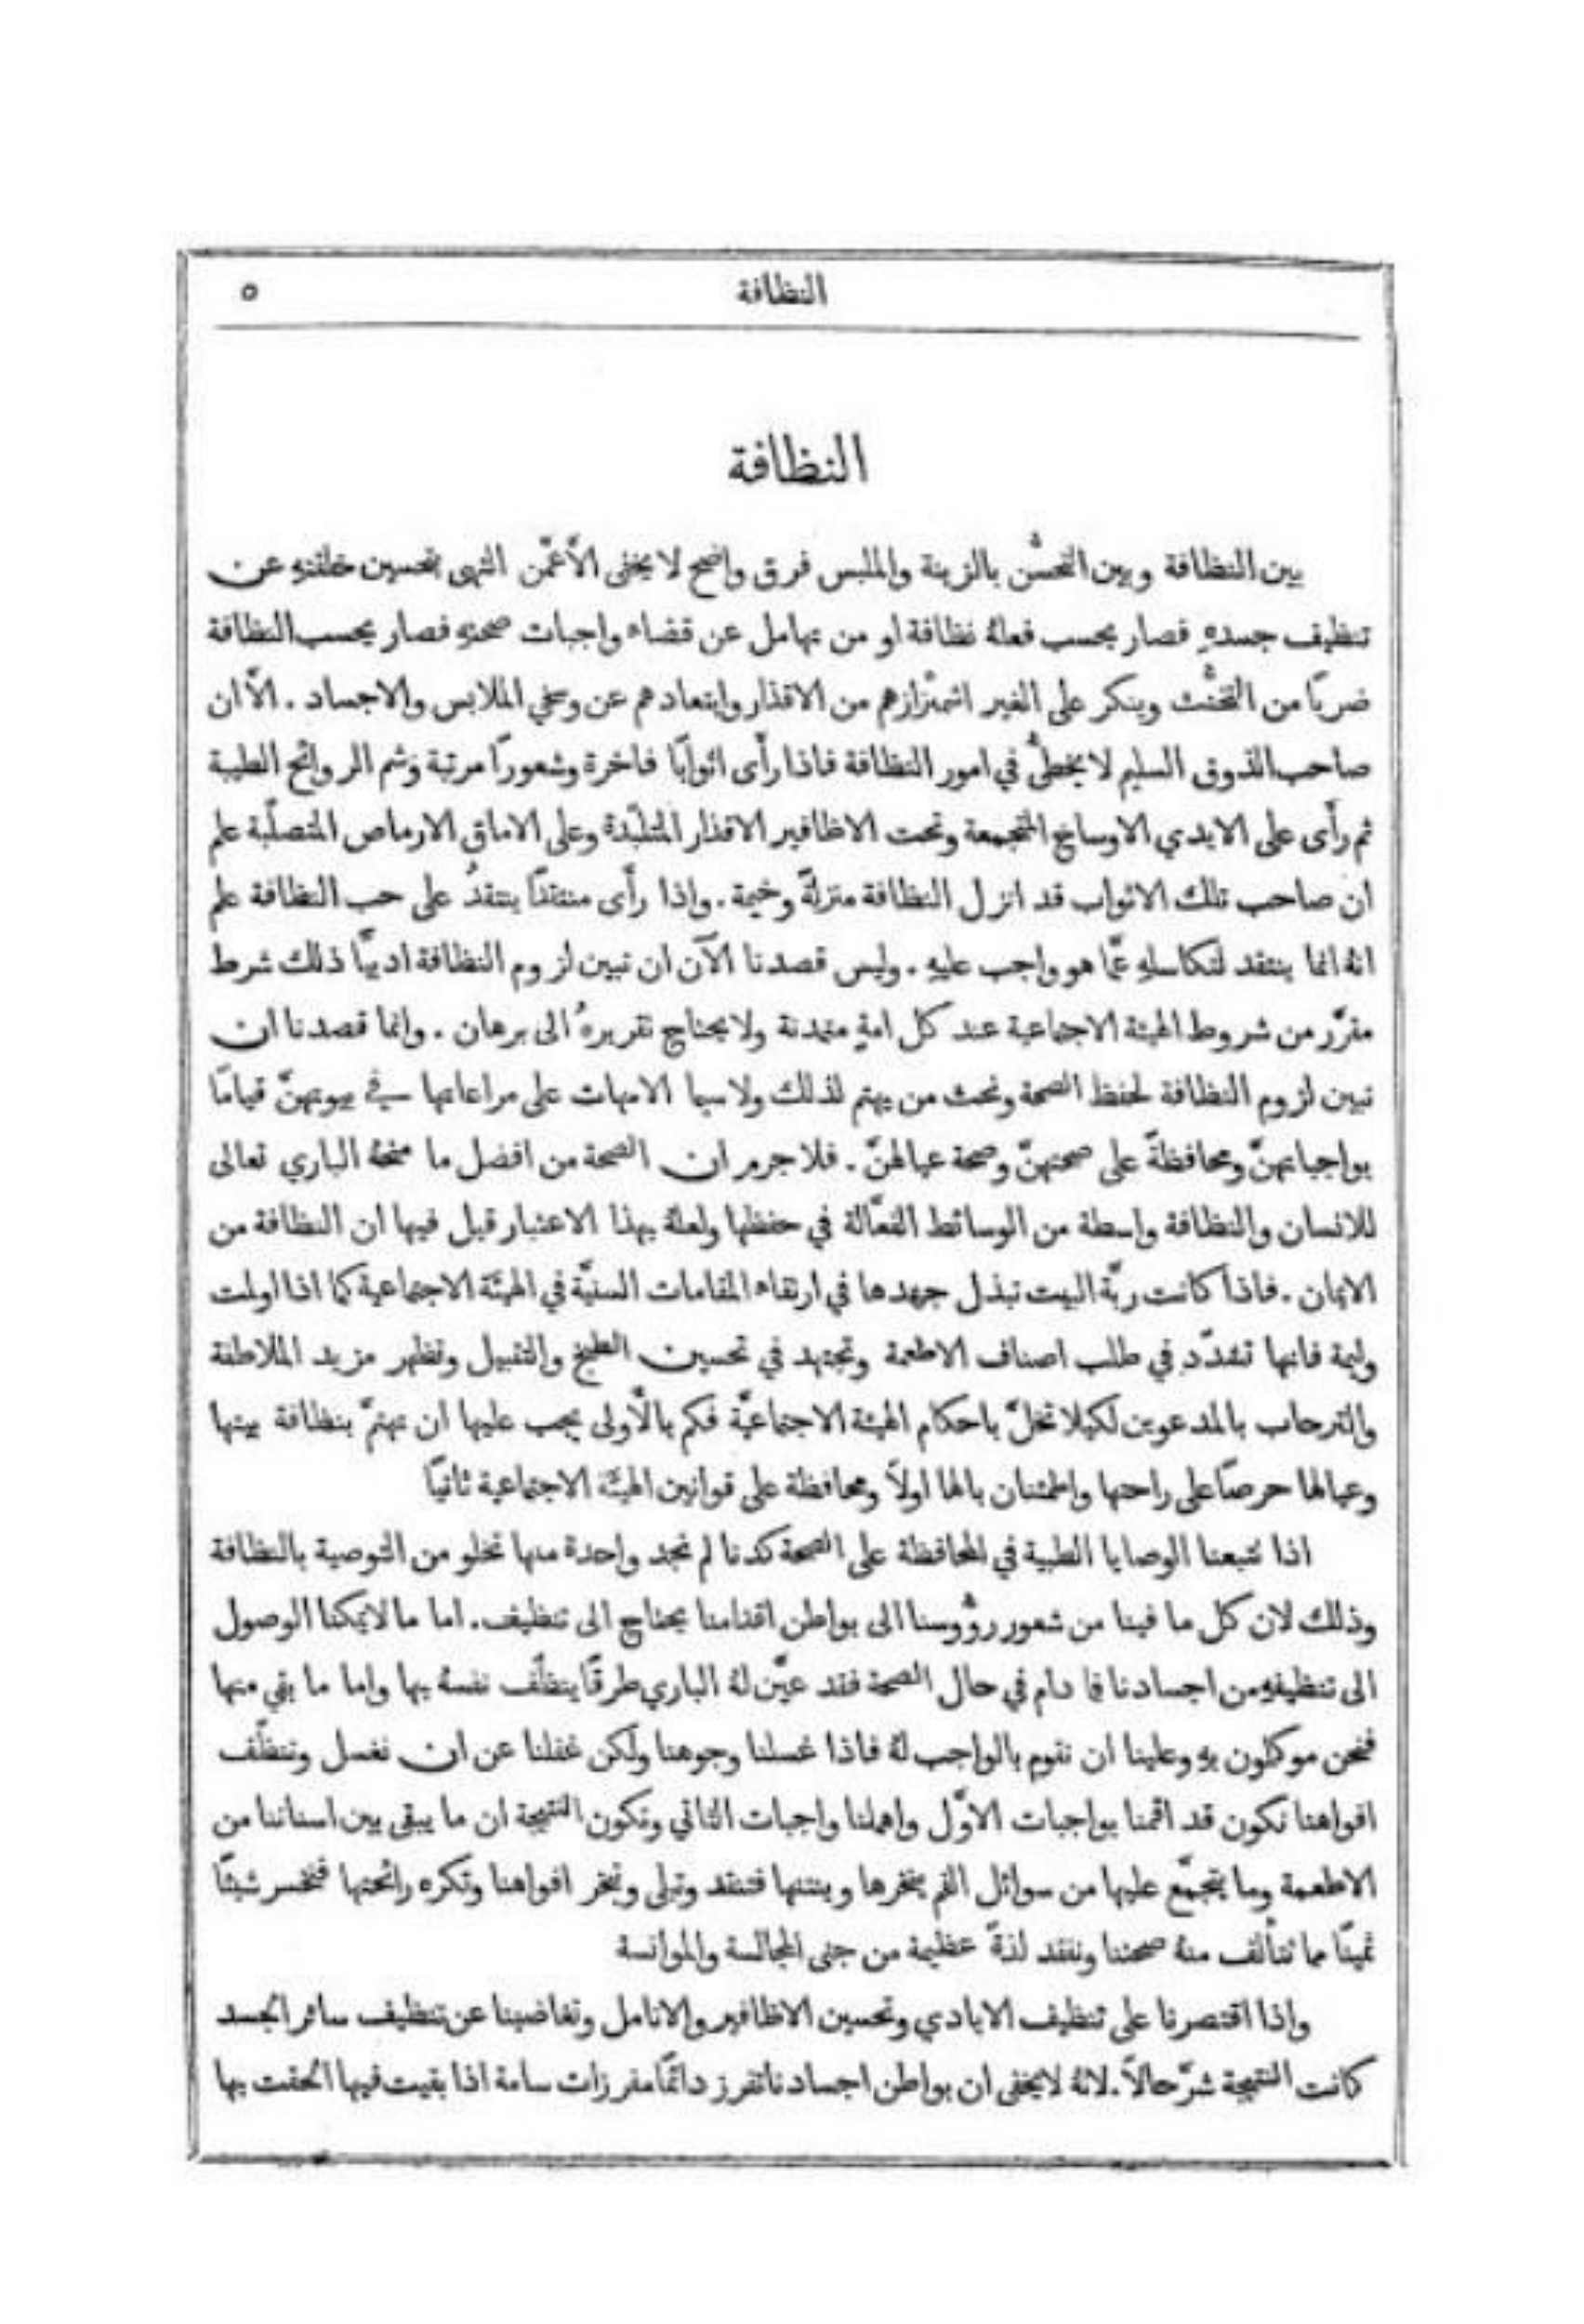 النظافة ٥
النظافة
بين النظافة وبين التحسُّن بالزينة والملبس فرق واضح لا يخفى الّا عمّن التهى بتحسين خلقتهِ عن
تنظيف جسدهِ فصار يحسب فعلهُ نظافة او من تهامل عن قضاء واجبات صحتهِ فصار يحسب النظافة
ضربًا من التخنُّث وينكر على الغير اشمئزازهم من الاقذار وابتعادهم عن وسخي الملابس والاجساد . الّا ان
صاحب الذوق السليم لا يخطئُ في امور النظافة فاذا رأى اثوابًا فاخرة وشعورًا مرتبة وشم الروائح الطيبة
ثم رأى على الايدي الاوساخ المتجمعة وتحت الاظافير الاقذار المتلبّدة وعلى الاماق الارماص المتصلّبة علم
ان صاحب تلك الاثواب قد انزل النظافة منزلةً وخيمة . واذا رأى منتقدًا ينتقدُ على حب النظافة علم
انهُ انما ينتقد لتكاسلهِ عمَّا هو واجب عليهِ . وليس قصدنا الآن ان نبين لزوم النظافة ادبيًّا ذلك شرط
مقرَّر من شروط الهيئة الاجتماعية عند كل امةٍ متمدنة ولا يحتاج تقريرهُ الى برهان . وانما قصدنا ان
نبين لزوم النظافة لحفظ الصحة ونحث من يهتم لذلك ولاسيما الامهات على مراعاتها في بيوتهنّ قيامًا
بواجباتهنّ ومحافظةً على صحتهنّ وصحة عيالهنّ . فلا جرم ان الصحة من افضل ما منحهُ الباري تعالى
للانسان والنظافة واسطة من الوسائط الفعَّالة في حفظها ولعلهُ بهذا الاعتبار قيل فيها ان النظافة من
الايمان . فاذا كانت ربّة البيت تبذل جهدها في ارتقاء المقامات السنيَّة في الهيئة الاجتماعية كما اذا اولمت
وليمة فانها تشدّد في طلب اصناف الاطعمة وتجتهد في تحسين الطبخ والتقبيل وتظهر مزيد الملاطفة
والترحاب بالمدعوين لكيلا تخلّ باحكام الهيئة الاجتماعيَّة فكم بالأَولى يجب عليها ان تهتمّ بنظافة بيتها
وعيالها حرصًا على راحتها واطمئنان بالها اولًا ومحافظة على قوانين الهيئة الاجتماعية ثانيًا
اذا تتبعنا الوصايا الطبية في المحافظة على الصحة كدنا لم نجد واحدة منها تخلو من التوصية بالنظافة
وذلك لان كل ما فينا من شعور رؤُوسنا الى بواطن اقدامنا يحتاج الى تنظيف . اما ما لا يمكنا الوصول
الى تنظيفهِ من اجسادنا فما دام في حال الصحة فقد عيَّن لهُ الباري طرقًا ينظّف نفسهُ بها واما ما بقي منها
فنحن موكلون بهِ وعلينا ان نقوم بالواجب لهُ فاذا غسلنا وجوهنا ولكن غفلنا عن ان نغسل وننظّف
افواهنا نكون قد اقمنا بواجبات الاوَّل واهملنا واجبات الثاني وتكون النتيجة ان ما يبقى بين اسناننا من
الاطعمة وما يتجمَّع عليها من سوائل الفم ينخرها وينتنها فتنقد وتبلى وتبخر افواهنا وتكره رائحتها فنخسر شيئًا
ثمينًا مما تتأَلف منهُ صحتنا ونفقد لذةً عظيمة من جنى المجالسة والموانسة
واذا اقتصرنا على تنظيف الايادي وتحسين الاظافير والانامل وتغاضينا عن تنظيف سائر الجسد
كانت النتيجة شرّ حالاً . لانهُ لا يخفى ان بواطن اجسادنا تفرز دائمًا مفرزات سامة اذا بقيت فيها الحقت بها